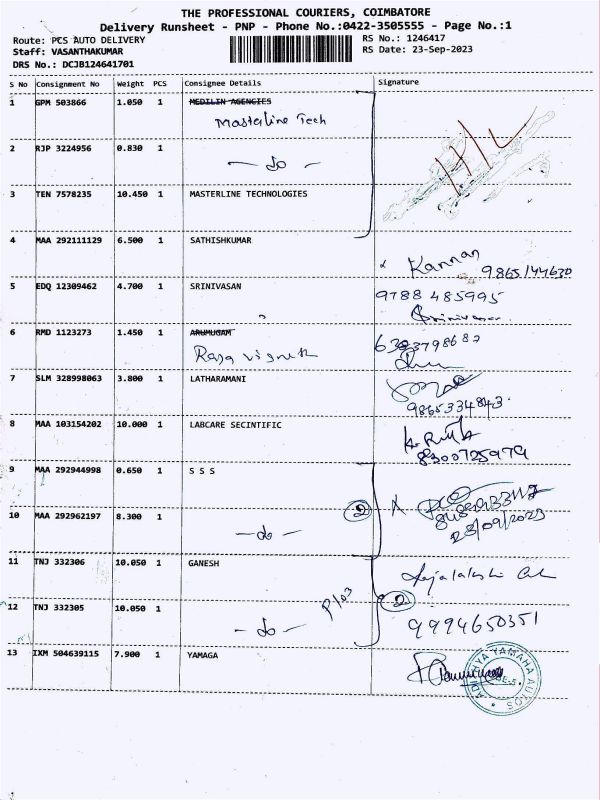 THE PROFESSIONAL COURIERS, COIMBATORE
Delivery Runsheet - PNP - Phone No.:0422-3505555 - Page No.:1
Route: PCS AUTO DELIVERY
RS No.: 1246417
Staff: VASANTHAKUMAR
RS Date: 23-Sep-2023
DRS No.: DCJB124641701
S No Consignment No Weight PCS Consignee Details Signature
1 GPM 503866 1.050 1 MEDILIN AGENCIES
Masterline Tech
2 RJP 3224956 0.830 1
— do —
3 TEN 7578235 10.450 1 MASTERLINE TECHNOLOGIES
4 MAA 292111129 6.500 1 SATHISHKUMAR
Kannan
9865144630
5 EDQ 12309462 4.700 1 SRINIVASAN
9788 485995
Srinivasan
6 RMD 1123273 1.450 1 ARUMUGAM
Raja vignesh
7 SLM 328998063 3.800 1 LATHARAMANI
9865334843
8 MAA 103154202 10.000 1 LABCARE SECINTIFIC
8300725979
9 MAA 292944998 0.650 1 S S S
10 MAA 292962197 8.300 1
— do —
2
23/09/2023
11 TNJ 332306 10.050 1 GANESH
12 TNJ 332305 10.050 1
— do —
2
9994650351
13 IXM 504639115 7.900 1 YAMAGA
ADITHYA YAMAHA AUTOS